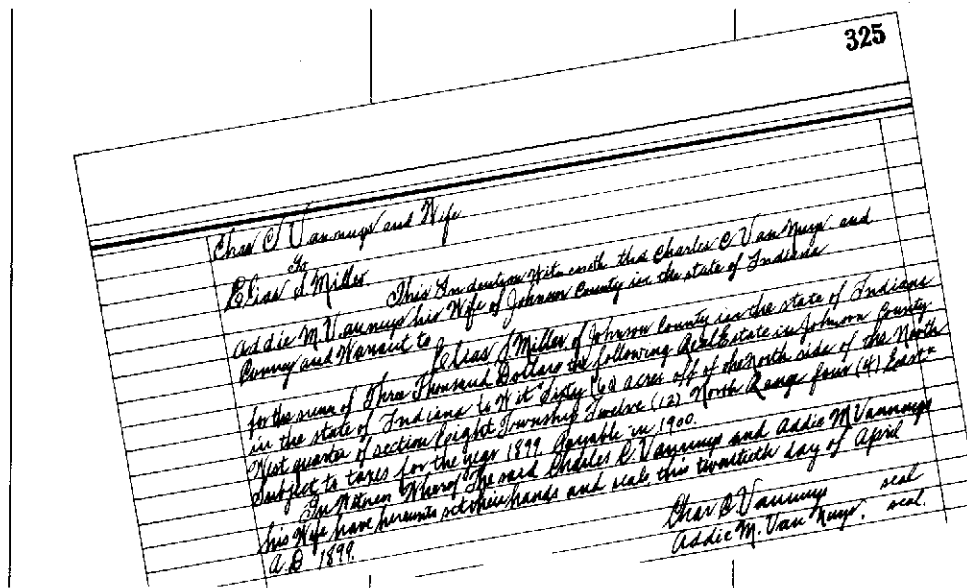 325
Chas C. Vannuys and Wife
To
Elias J Miller.
This Indenture Witnesseth that Charles C. Van Nuys and
Addie M. Vannuys his Wife of Johnson County in the state of Indiana
Convey and Warrant to Elias J Miller of Johnson County in the state of Indiana
for the sum of Three Thousand Dollars the following Real Estate in Johnson County
in the state of Indiana to Wit" Sixty (60) acres off of the North side of the North
West quarter of section Eight Township Twelve (12) North Range four (4) East"
Subject to taxes for the year 1899 Payable in 1900.
In Witness Whereof The said Charles C. Vannuys and Addie M Vannuys
his Wife have hereunto set their hands and seals this twentieth day of April
A.D 1899.
Chas C Vannuys seal
Addie M. Van Nuys. seal.